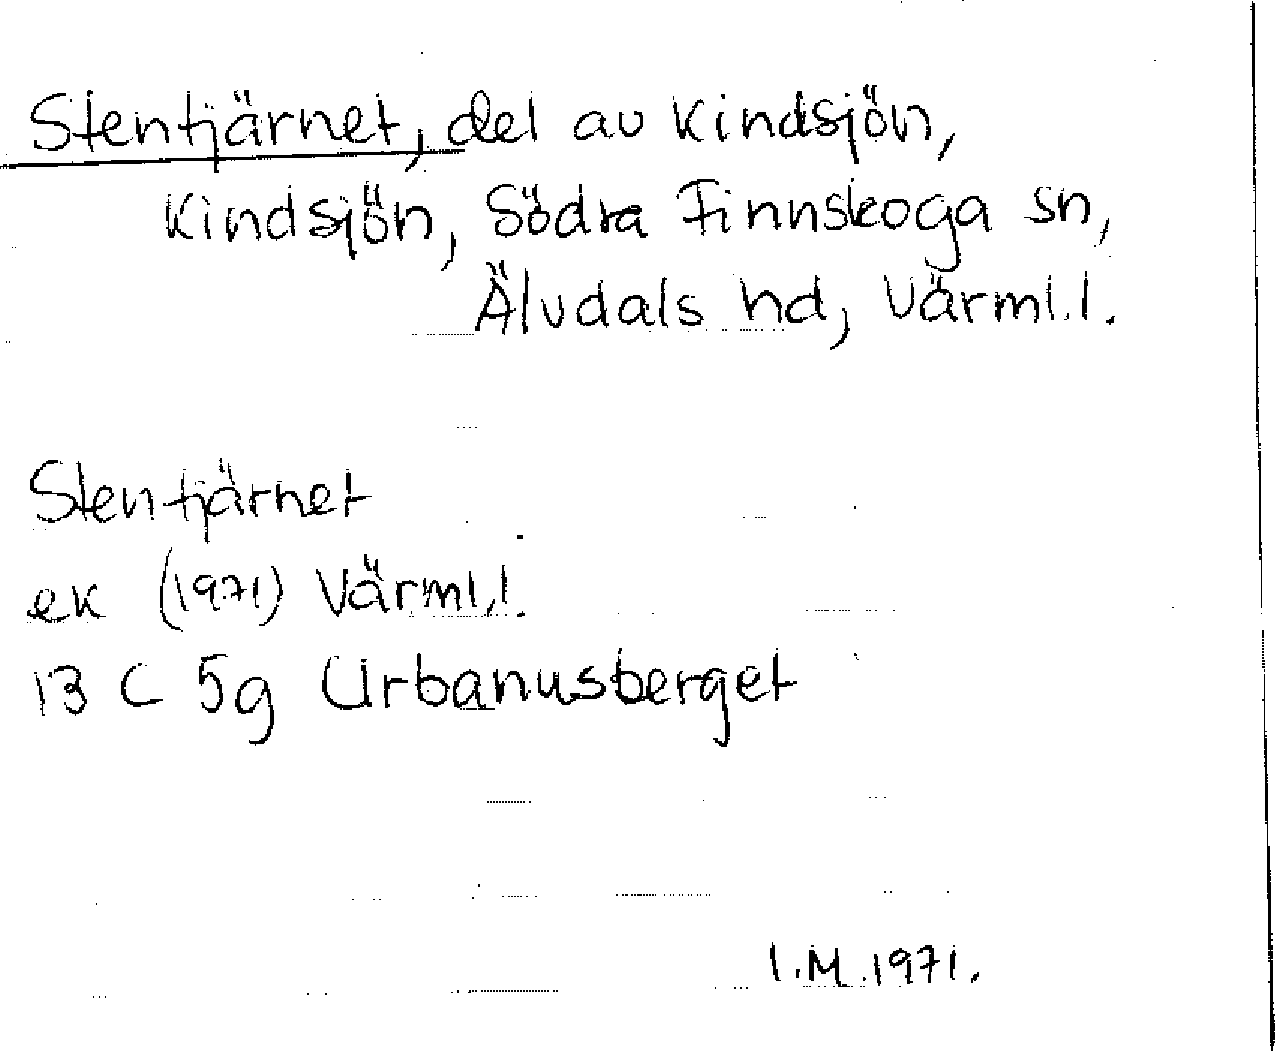 Stentjärnet, del av Kindsjön,
Kindsjön, Södra Finnskoga sn,
Älvdals hd, Värml.l.
Stentjärnet
ek (1971) Värml.l.
13 C 5g Urbanusberget
I.M.1971.